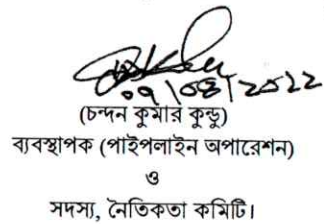 ০৭/০৪/২০২২
(চন্দন কুমার কুন্ডু)
ব্যবস্থাপক (পাইপলাইন অপারেশন)
ও
সদস্য, নৈতিকতা কমিটি।